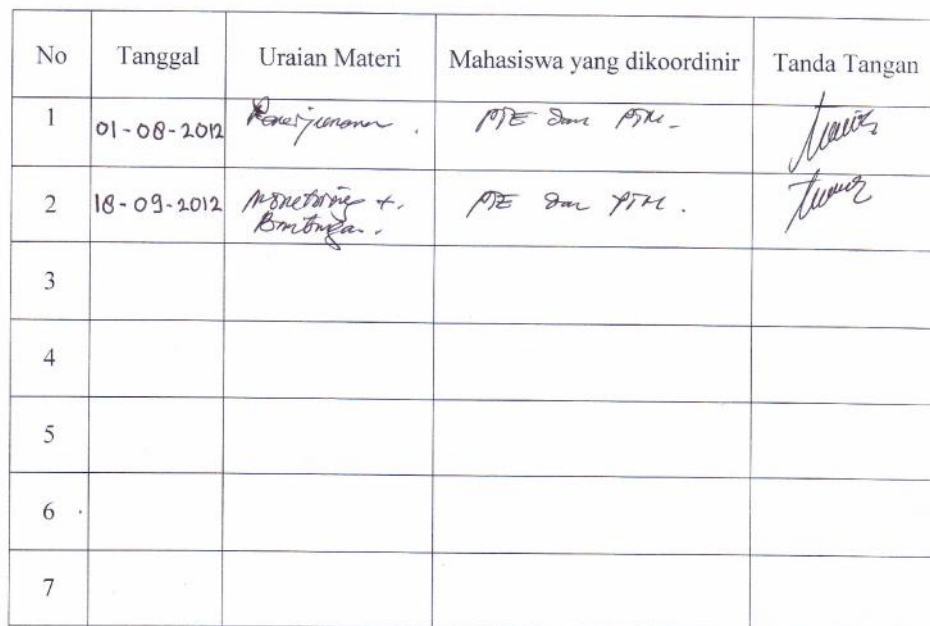 No Tanggal Uraian Materi Mahasiswa yang dikoordinir Tanda Tangan
1 01-08-2012 Penerjunan . PTE dan PTM.
2 18-09-2012 Monitoring + PTE dan PTM.
Bimbingan.
3
4
5
6
7